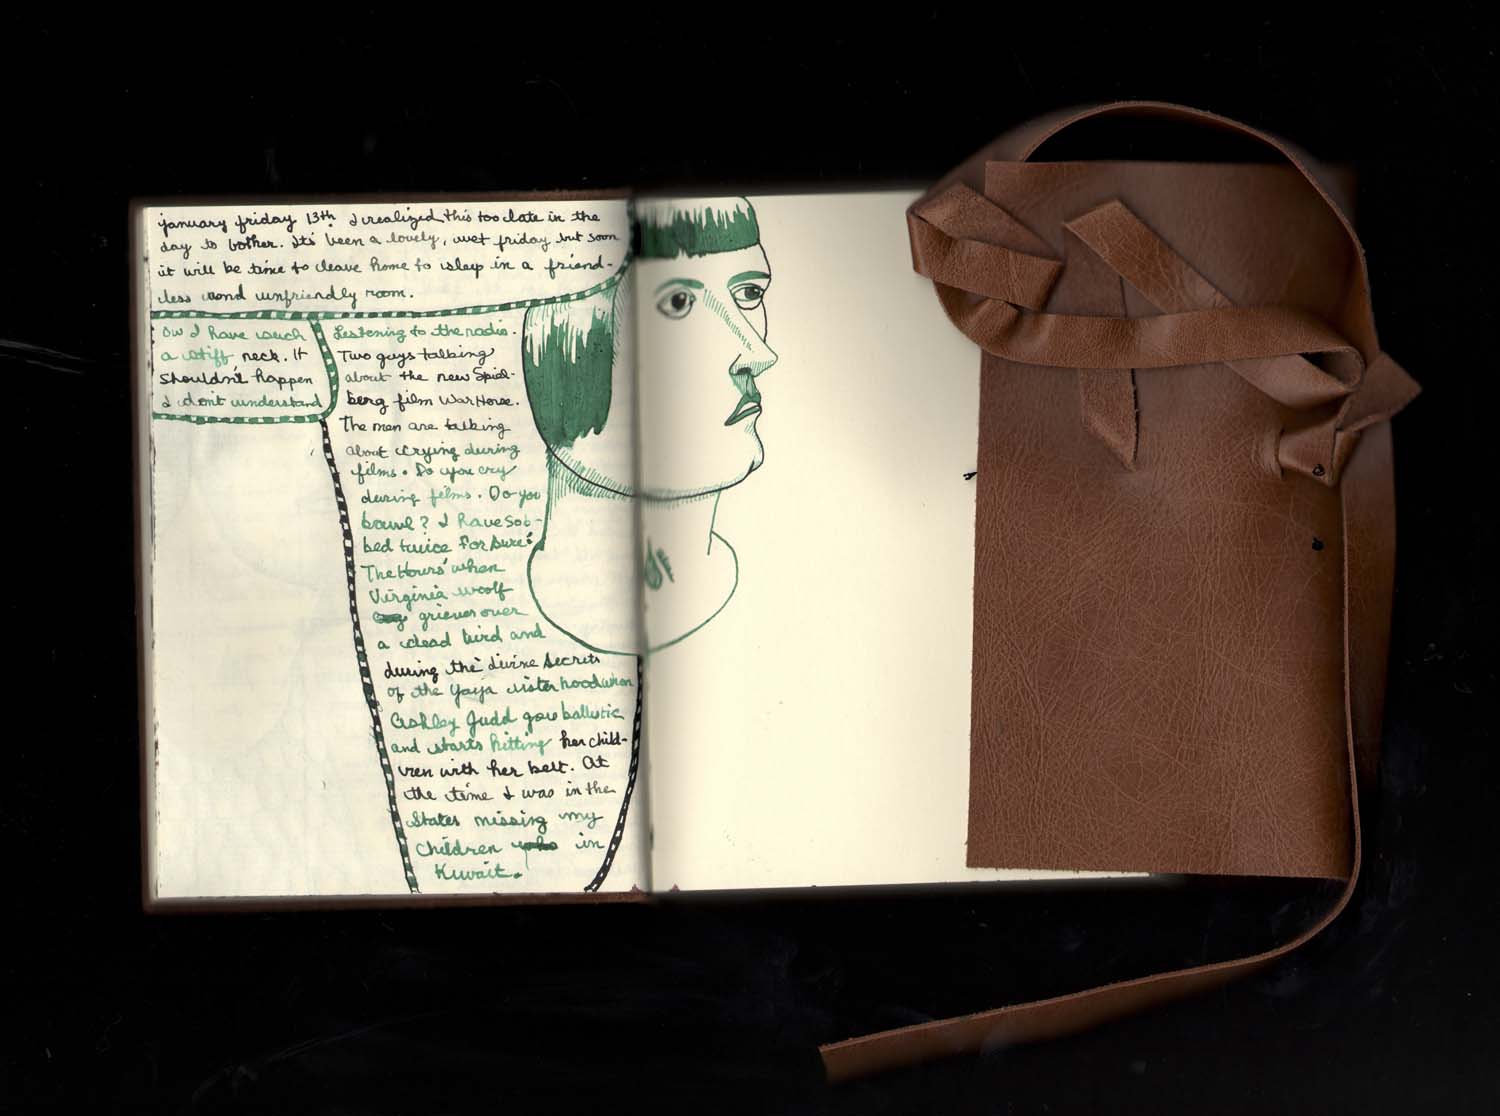 january friday 13th. I realized this too late in the
day to bother. Its been a lovely, wet friday but soon
it will be time to leave home to sleep in a friend-
less and unfriendly room.
Ow I have such
a stiff neck. It
shouldn't happen
I don't understand
Listening to the radio.
Two guys talking
about the new Spiel-
berg film War Horse.
The men are talking
about crying during
films. Do you cry
during films. Do you
bawl? I have sob-
bed twice for sure:
The Hours when
Virginia woolf
grieves over
a dead bird and
during the divine secrets
of the Yaya sisterhood when
Ashley Judd goes ballistic
and starts hitting her child-
ren with her belt. At
the time I was in the
States missing my
children who in
Kuwait.